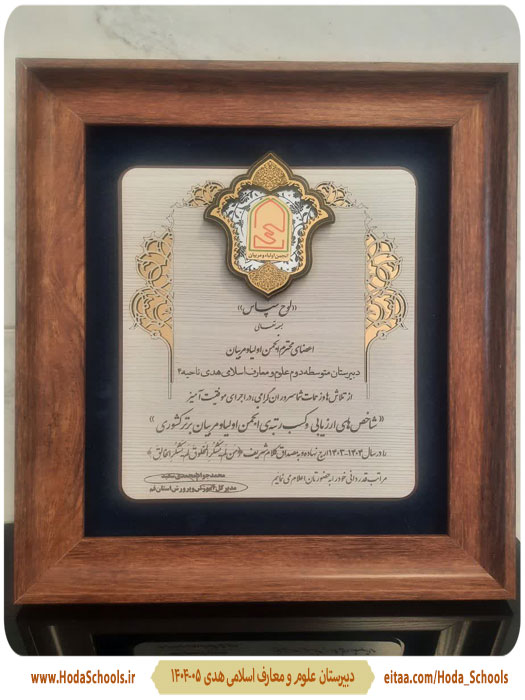 انجمن اولیاء و مربیان
«لوح سپاس»
بسمه تعالی
اعضای محترم انجمن اولیاء و مربیان
دبیرستان متوسطه دوم علوم و معارف اسلامی هدی ناحیه ۲
از تلاش‌ها و زحمات شما سروران گرامی، در اجرای موفقیت آمیز
«شاخص های ارزیابی و کسب رتبه‌ی انجمن اولیاء و مربیان برتر کشوری»
را در سال ۱۴۰۴-۱۴۰۳ ارج نهاده و به مصداق کلام شریف «من لم یشکر المخلوق لم یشکر الخالق»
مراتب قدردانی خود را به حضورتان اعلام می نمایم
مدیرکل آموزش و پرورش استان قم
www.HodaSchools.ir
دبیرستان علوم و معارف اسلامی هدی ۰۵-۱۴۰۴
eitaa.com/Hoda_Schools